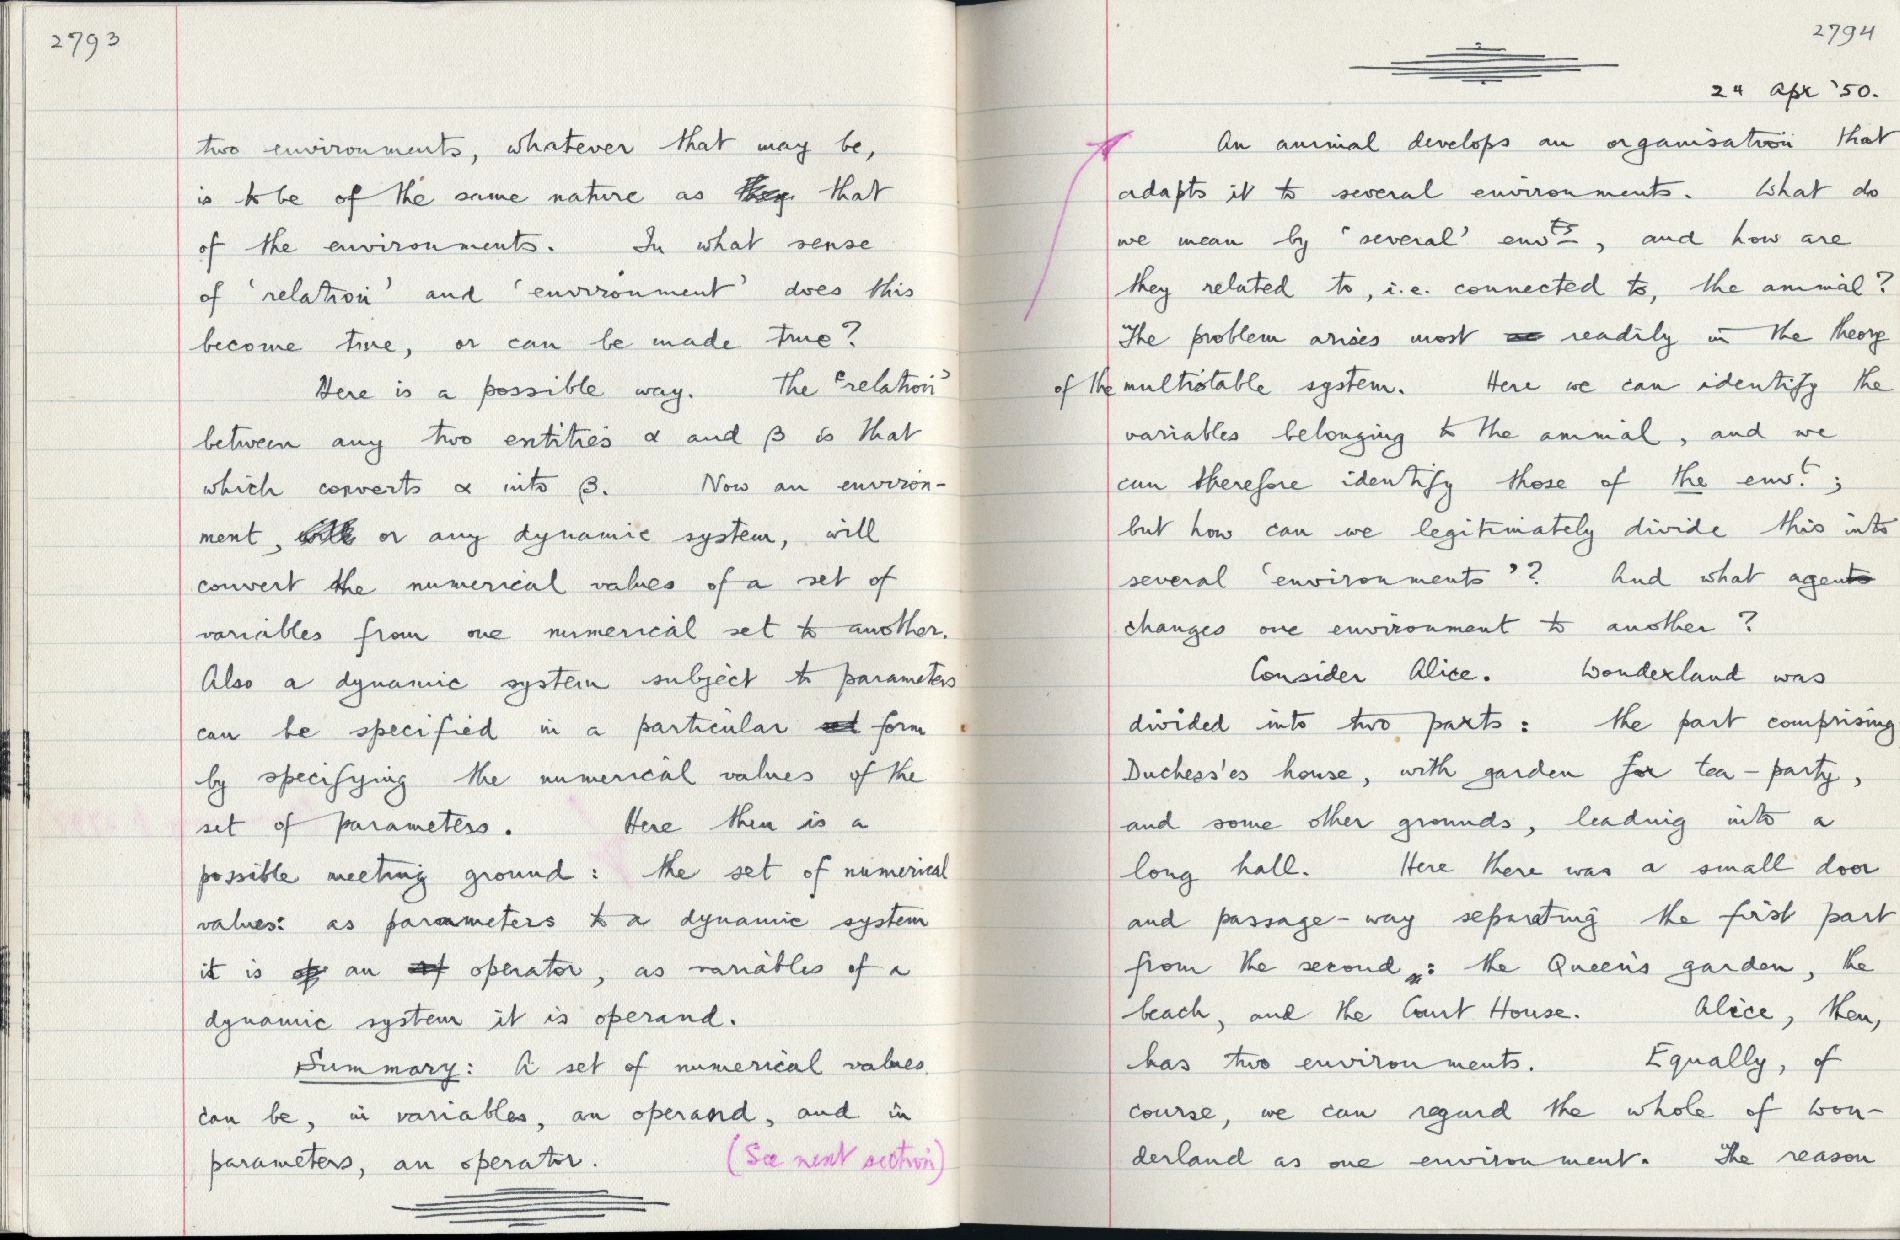 2793
two environments, whatever that may be,
is to be of the same nature as they that
of the environments. In what sense
of 'relation' and 'environment' does this
become true, or can be made true?
Here is a possible way. The 'relation'
between any two entities α and β is that
which converts α into β. Now an environ-
ment, will or any dynamic system, will
convert the numerical values of a set of
variables from one numerical set to another.
Also a dynamic system subject to parameters
can be specified in a particular set form
by specifying the numerical values of the
set of parameters. Here then is a
possible meeting ground: the set of numerical
values: as parameters to a dynamic system
it is of an operator, as variables of a
dynamic system it is operand.
Summary: A set of numerical values
can be, in variables, an operand, and in
parameters, an operator. (See next section)
2794
24 Apr '50.
An animal develops an organisation that
adapts it to several environments. What do
we mean by 'several' envts, and how are
they related to, i.e. connected to, the animal?
The problem arises most readily in the theory
of the multistable system. Here we can identify the
variables belonging to the animal, and we
can therefore identify those of the envt.;
but how can we legitimately divide this into
several 'environments'? And what agents
changes one environment to another?
Consider Alice. Wonderland was
divided into two parts: the part comprising
Duchess'es house, with garden for tea-party,
and some other grounds, leading into a
long hall. Here there was a small door
and passage-way separating the first part
from the second: the Queen's garden, the
beach, and the Court House. Alice, then,
has two environments. Equally, of
course, we can regard the whole of Won-
derland as one environment. The reason